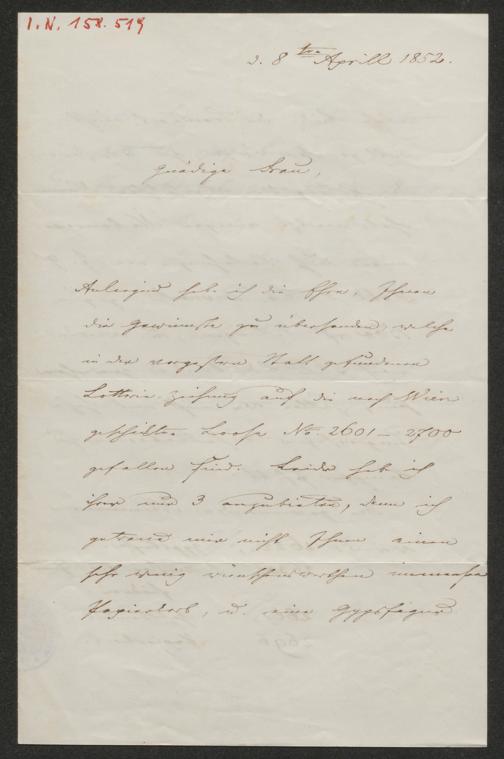 I. N. 158.519
d. 8ten Aprill 1852.
Gnädige Frau,
Anliegend habe ich die Ehre, Ihnen
die Gewinnste zu übersenden, welche
in der vorgestern Statt gefundenen
Lotterie-ziehung auf die nach Wien
geschickten Loose No. 2601 – 2700
gefallen sind. Leider hab ich
ihrer nur 3 anzubieten, denn ich
getraue mir nicht Ihnen einen
sehr wenig wünschenswerthen immensen
Papierkorb, u. eine Gypsfigur